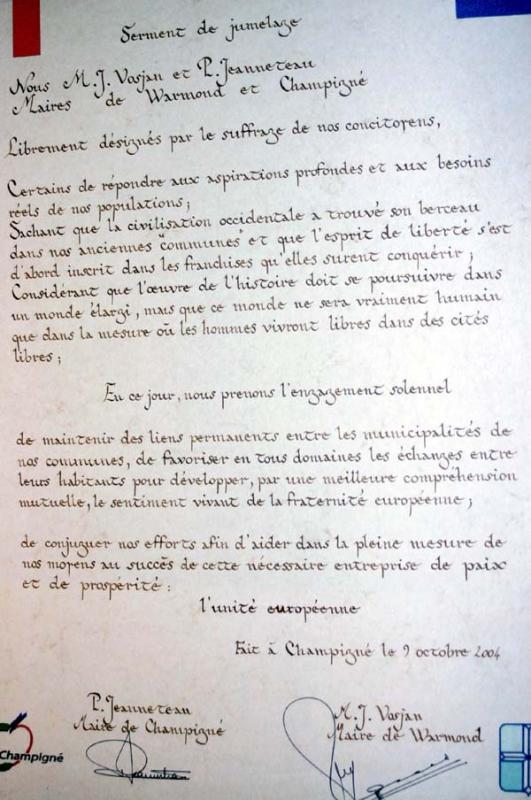 Serment de jumelage
Nous M. J. Vosjan et P. Jeanneteau
Maires de Warmond et Champigné
Librement désignés par le suffrage de nos concitoyens,
Certains de répondre aux aspirations profondes et aux besoins
réels de nos populations ;
Sachant que la civilisation occidentale a trouvé son berceau
dans nos anciennes "communes" et que l'esprit de liberté s'est
d'abord inscrit dans les franchises qu'elles surent conquérir ;
Considérant que l'œuvre de l'histoire doit se poursuivre dans
un monde élargi, mais que ce monde ne sera vraiment humain
que dans la mesure où les hommes vivront libres dans des cités
libres ;
En ce jour, nous prenons l'engagement solennel
de maintenir des liens permanents entre les municipalités de
nos communes, de favoriser en tous domaines les échanges entre
leurs habitants pour développer, par une meilleure compréhension
mutuelle, le sentiment vivant de la fraternité européenne ;
de conjuguer nos efforts afin d'aider dans la pleine mesure de
nos moyens au succès de cette nécessaire entreprise de paix
et de prospérité :
l'unité européenne
Fait à Champigné le 9 octobre 2004
P. Jeanneteau
Maire de Champigné
M. J. Vosjan
Maire de Warmond
Champigné